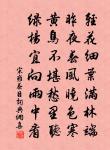 輕花細葉滿林端
昨夜春風曉色寒
黃鳥不堪愁裏聽
綠楊宜向雨中看
宋雍春日詞典網集